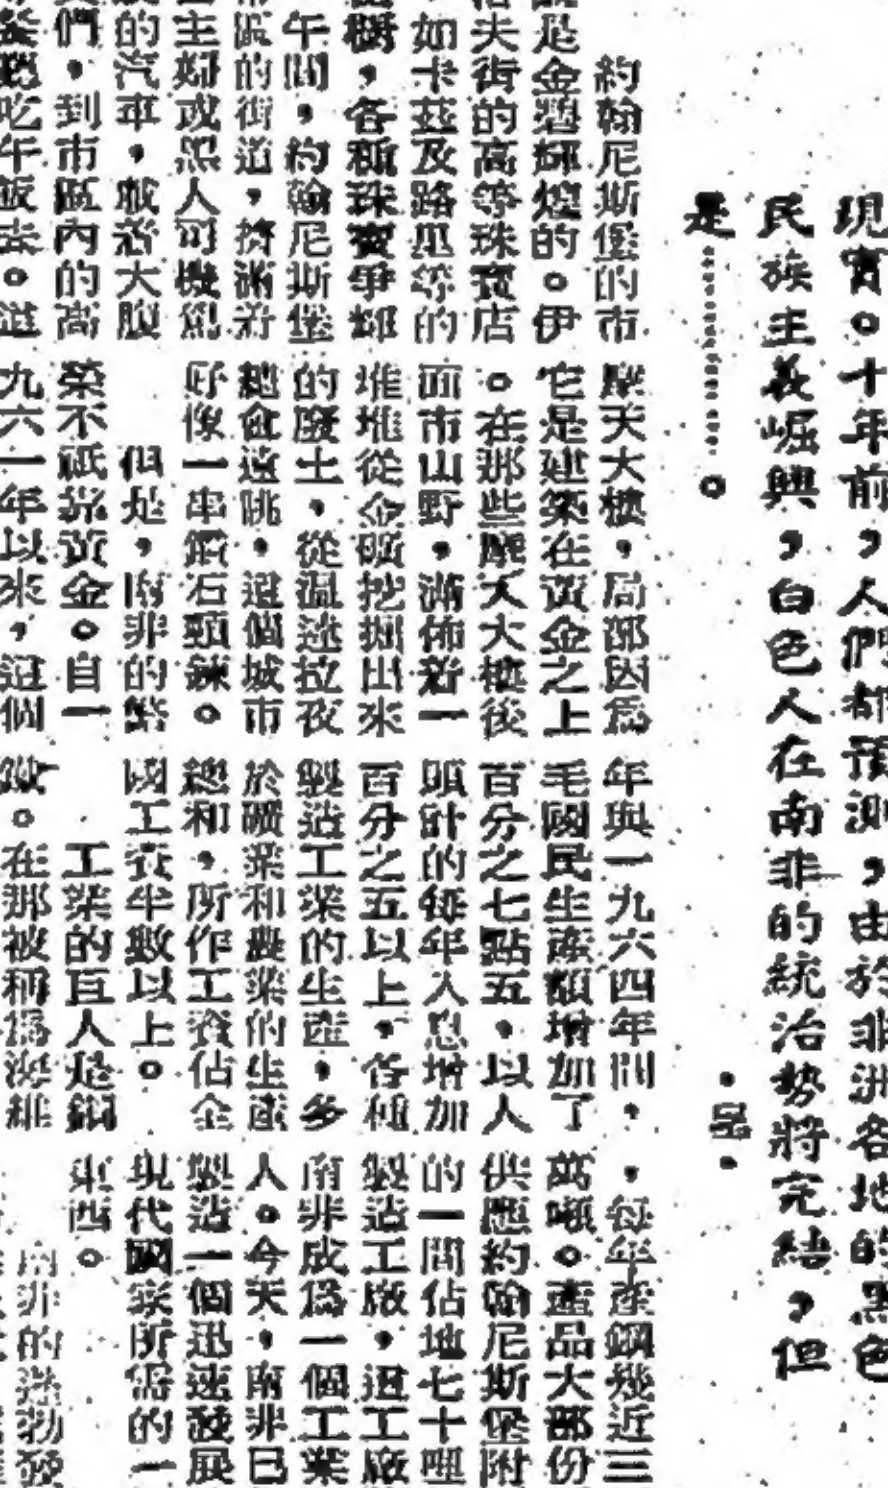 現實。十年前，人們都預測，由於非洲各地的黑色
民族主義崛興，白色人在南非的統治勢將完結，但
是…………。
·呂·
約翰尼斯堡的市
是金碧輝煌的。伊
夫街的高等珠寶店
如卡茲及路里等的
櫥，各種珠寶爭輝
午間，約翰尼斯堡
區的街道，擠滿着
主婦或黑人司機駕
的汽車，載着大腹
們，到市區內的高
餐廳吃午飯去。這
摩天大樓，局部因爲
它是建築在黃金之上
。在那些摩天大樓後
面市山野，滿佈着一
堆堆從金礦挖掘出來
的廢土，從溫途拉夜
總會遠眺，這個城市
好像一串鑽石頸鍊。
但是，南非的繁
榮不祇靠黃金。自一
九六一年以來，這個
年與一九六四年間，
毛國民生產額增加了
百分之七點五，以人
頭計的每年入息增加
百分之五以上，各種
製造工業的生產，多
於礦業和農業的生產
總和，所作工資佔全
國工資半數以上。
工業的巨人是鋼
鐵。在那被稱爲
，每年產鋼幾近三
萬噸。產品大部份
供應約翰尼斯堡附
的一間佔地七十哩
製造工廠，這工廠
南非成爲一個工業
人。今天，南非已
製造一個迅速發展
現代國家所需的一
東西。
南非的蓬勃發